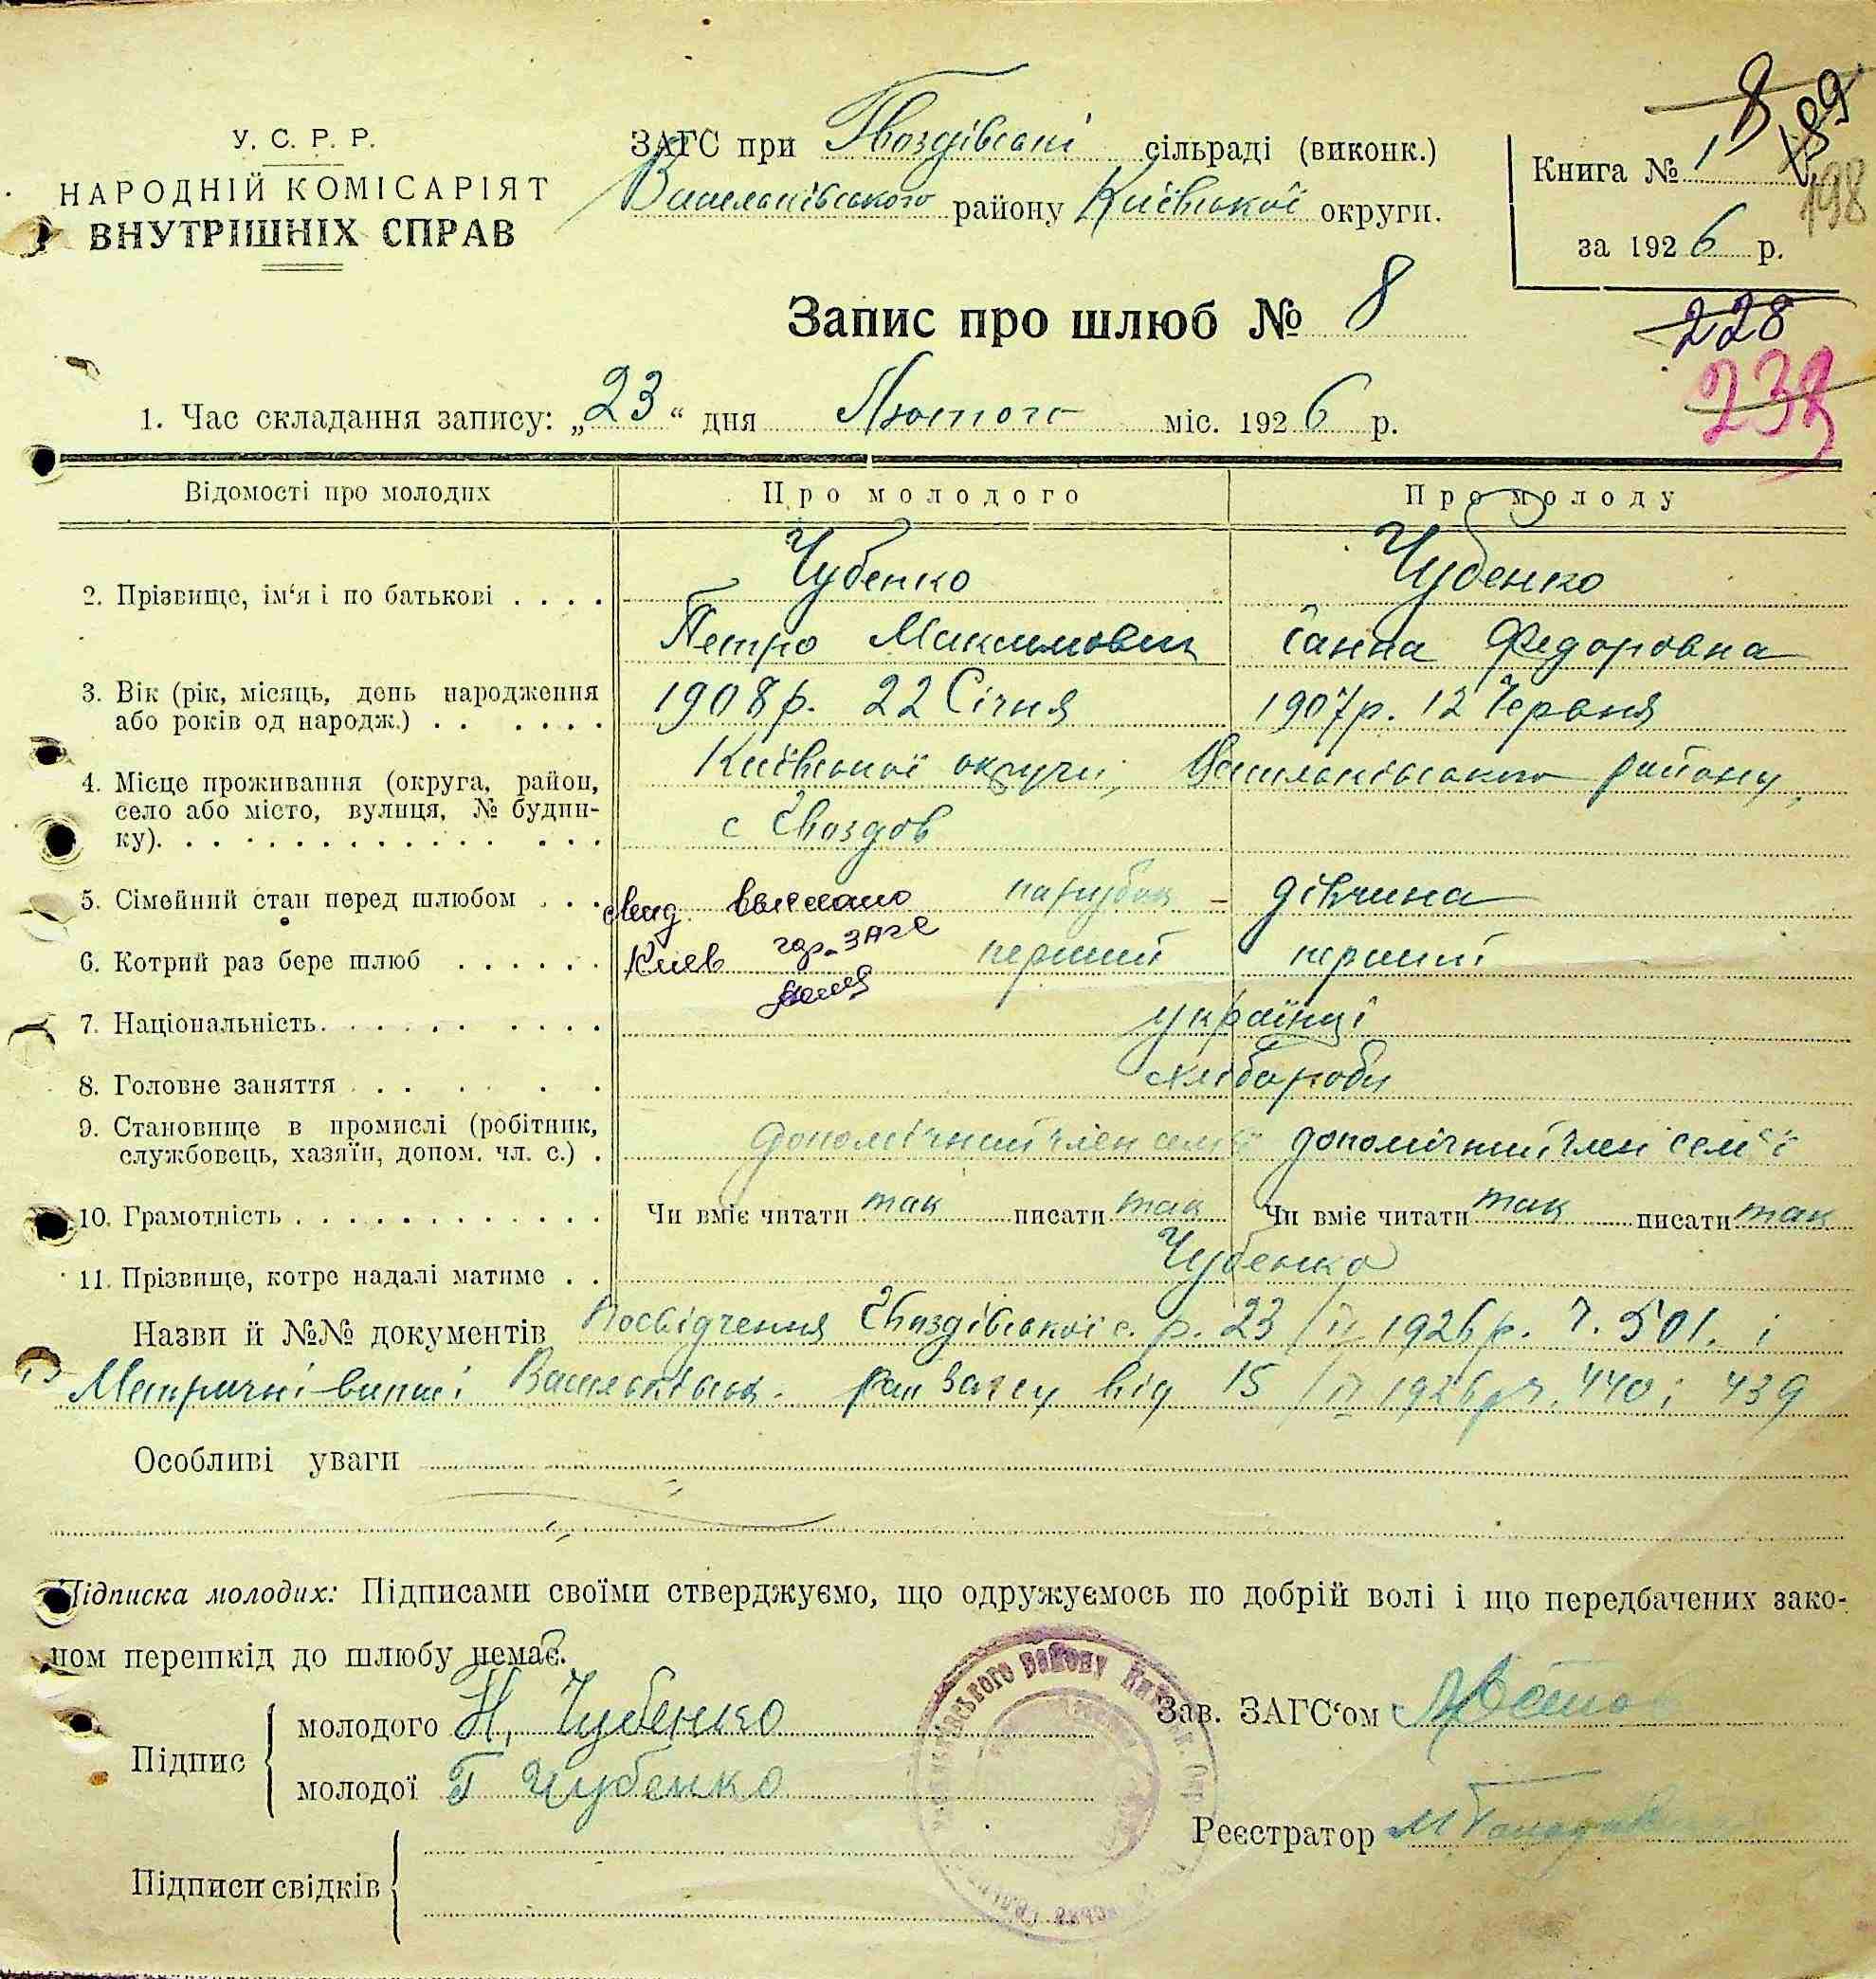 У. С. Р. Р.
НАРОДНІЙ КОМІСАРІЯТ
ВНУТРІШНІХ СПРАВ
ЗАГС при Гвоздівські сільраді (виконк.)
Васильківського району Київської округи.
Книга № 1
8
189
198
за 1926 р.
228
238
Запис про шлюб № 8
1. Час складання запису: „23“ дня Лютого міс. 1926 р.
Відомості про молодих
Про молодого
Про молоду
2. Прізвище, ім‘я і по батькові . . . .
Чубенко
Чубенко
Петро Максимович
Ганна Федоровна
3. Вік (рік, місяць, день народження
або років од народж.) . . . . . .
1908 р. 22 Січня
1907 р. 12 Червня
4. Місце проживання (округа, район,
село або місто, вулиця, № будин-
ку).
Київської округи, Васильківського району,
с Гвоздов
5. Сімейний стан перед шлюбом . . .
парубок – дівчина
6. Котрий раз бере шлюб . . . . . .
Киев
перший
перший
7. Національність.
українці
8. Головне заняття
хлібороби
9. Становище в промислі (робітник,
службовець, хазяїн, допом. чл. с.) .
допомічний член семʼї
допомічний член семʼї
10. Грамотність
Чи вміє читати так писати так
Чи вміє читати так писати так
11. Прізвище, котре надалі матиме . .
Чубенко
Назви й №№ документів Посвідчення Гвоздівської с. р. 23/II 1926 р. ч. 501. і
Метричні випісі Васильківськ. рай Загсу від 15/II 1926 р ч. 440 і 439
Особливі уваги
Підписка молодих: Підписами своїми стверджуємо, що одружуємось по добрій волі і що передбачених зако-
ном перешкід до шлюбу немає.
Підпис
молодого П. Чубенко
молодої Г Чубенко
Зав. ЗАГС‘ом
Реєстратор
Підписи свідків